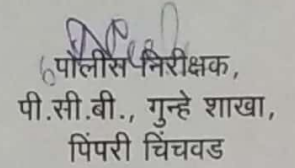 पोलीस निरीक्षक,
पी.सी.बी., गुन्हे शाखा,
पिंपरी चिंचवड